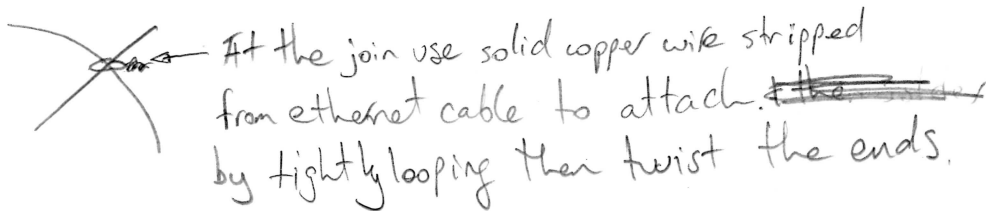 At the join use solid copper wire stripped
from ethernet cable to attach.
by tightly looping then twist the ends.